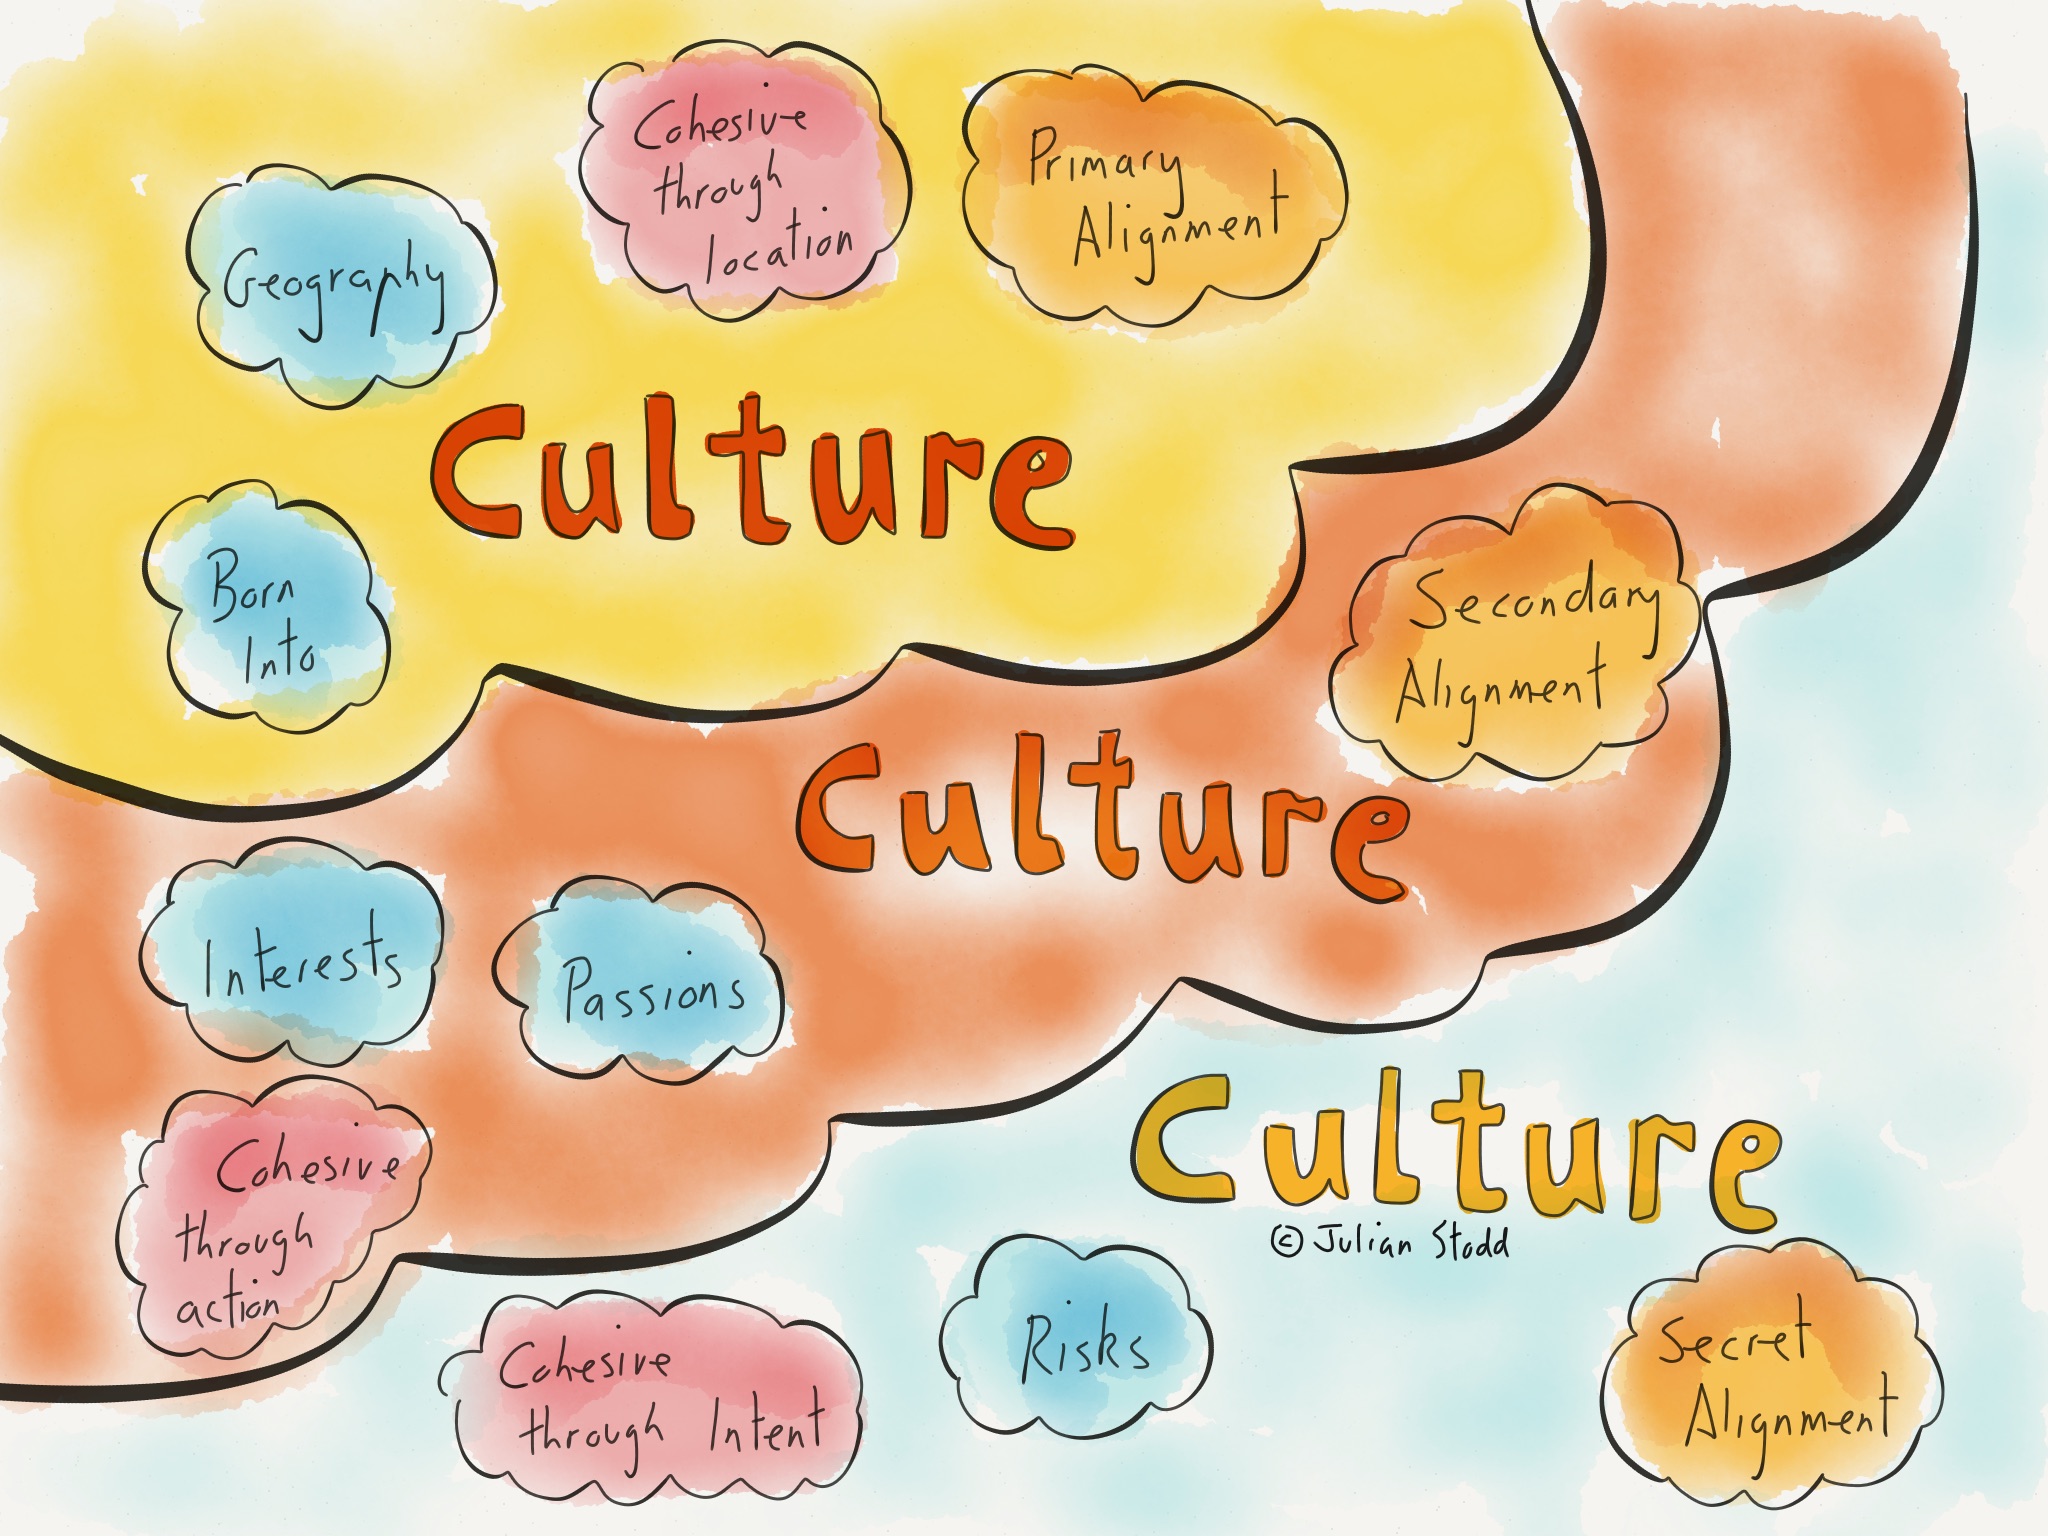 Cohesive
through
location
Primary
Alignment
Geography
Culture
Born
Into
Secondary
Alignment
Culture
Interests
Passions
Cohesive
through
action
Culture
© Julian Stodd
Risks
Secret
Alignment
Cohesive
through Intent